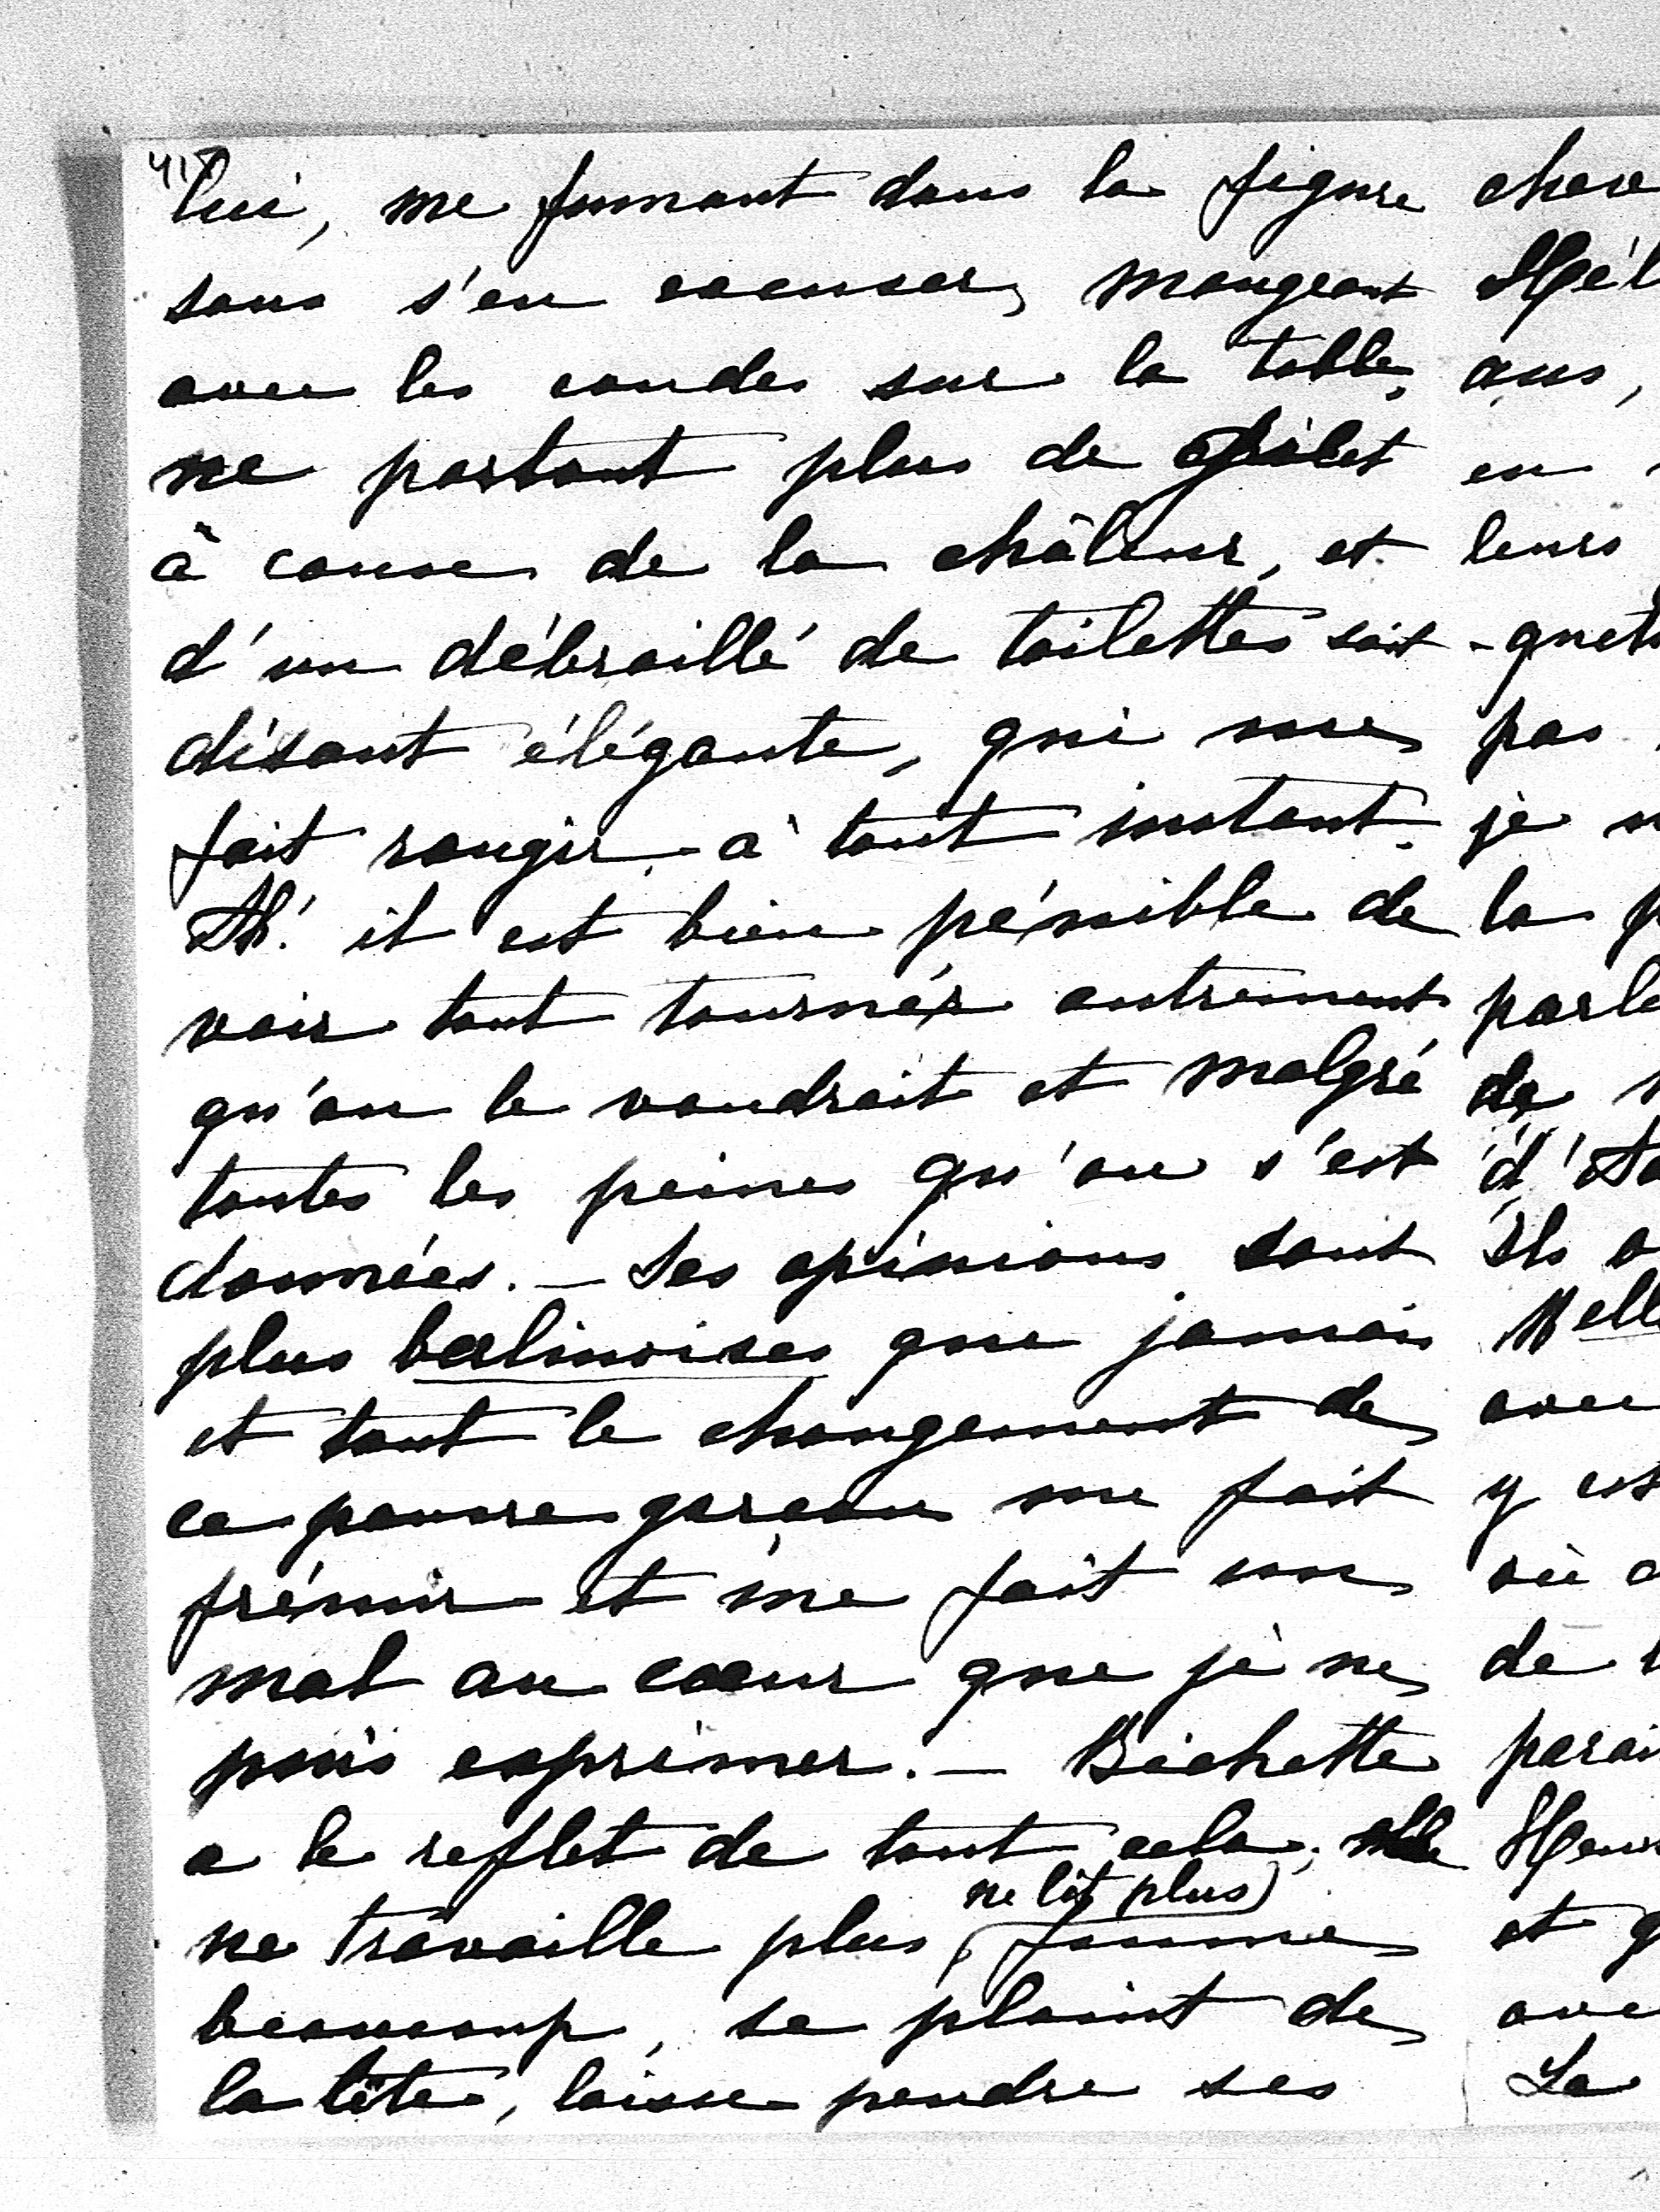 lui, me fumant dans la figure
sans s'en excuser, mangeant
avec les coudes sur la table,
ne portant plus de gilet
à cause de la châleur, et
d'un débraillé de toilettes soit
disant élégante, qui me
fait rougir à tout instant.
Ah! il est bien pénible de
voir tout tourner autrement
qu'on le voudrait et malgré
toutes les peines qu'on s'est
données. — Ses opinions sont
plus berlinoises que jamais
et tout le changement de
ce pauvre garcon me fait
frémir et me fait un
mal au cœur que je ne
puis exprimer. — Bichette
a le reflet de tout cela; elle
ne lit plus
ne travaille plus, fume
beaucoup, se plaint de
la tête, laisse pendre ses
chev
Hél
ans,
en
leurs
-quets
pas
je
la
parle
de
d'
Ils
Melle
avec
y est
où
de
parai
Henr
et
ave
La